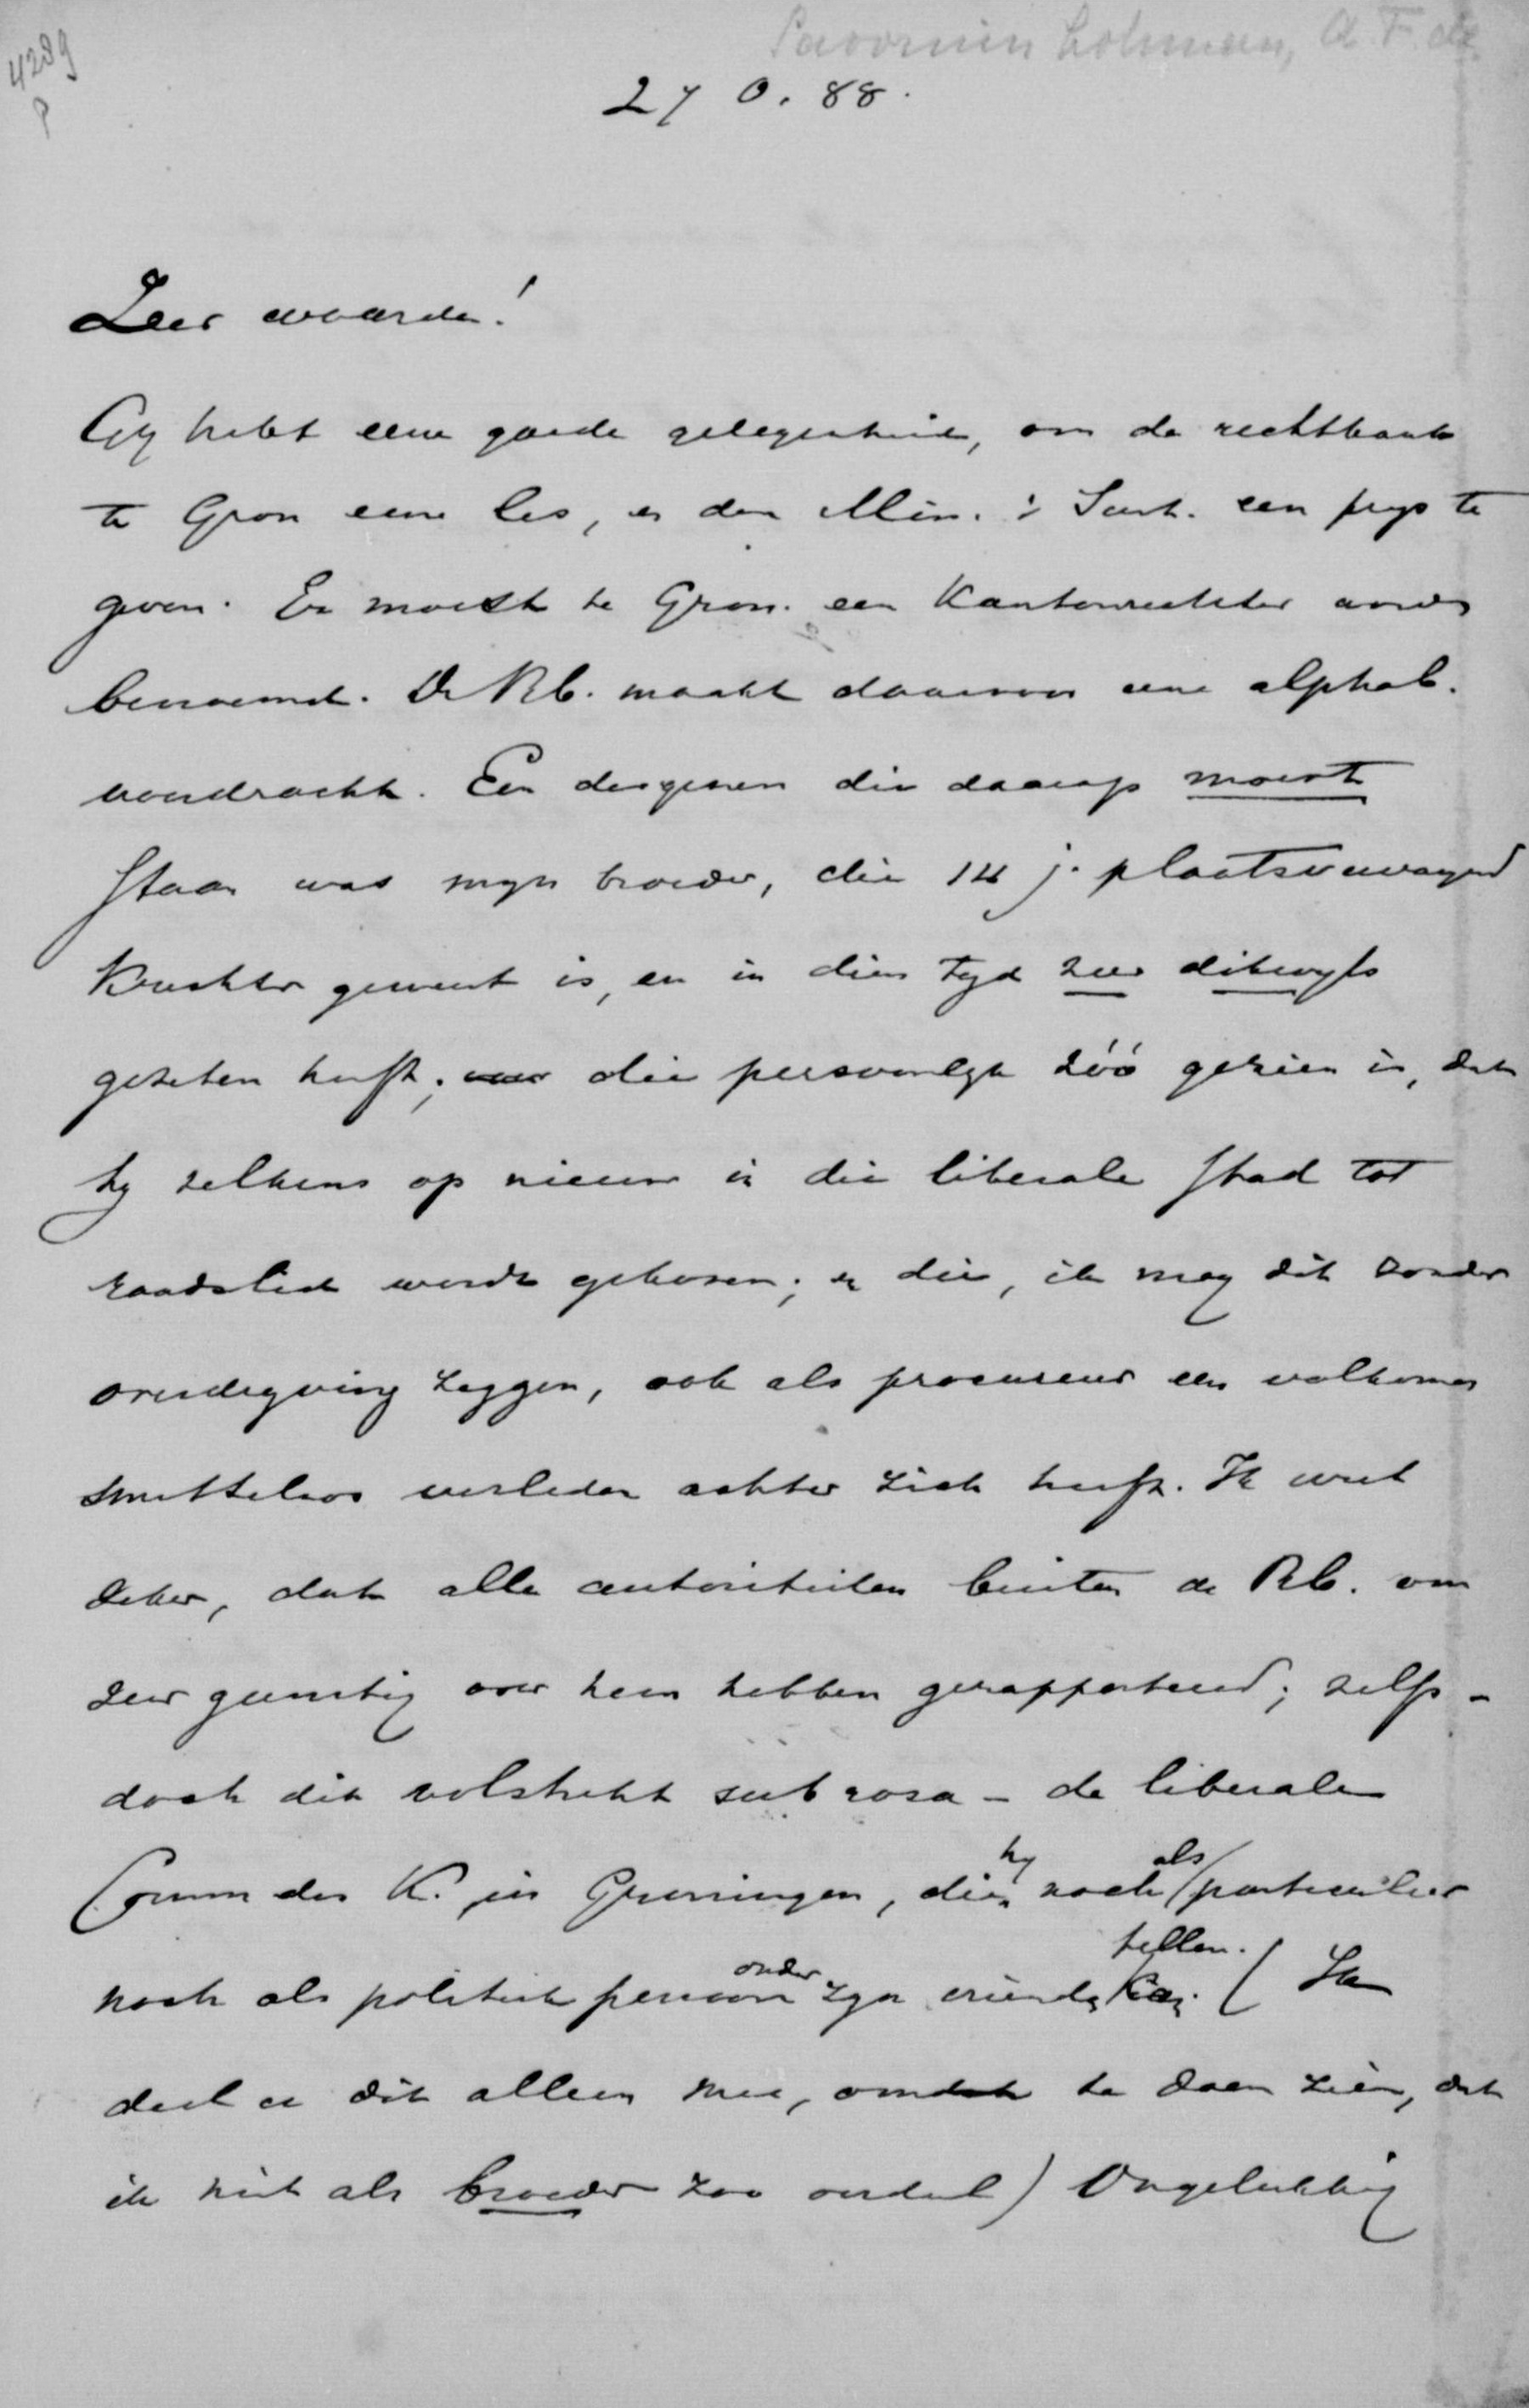 4289
P
Savornin Lohman, A. F. de
27 O. 88.
Zeer waarde!
Gy hebt eene goede gelegenheid, om de rechtbank
te Gron eene les, en den Min. v. Just. een prys te
geven. Er moest te Gron. een Kantonrechter worden
benoemd. De Rb. maakt daarvoor eene alphab.
voordracht. Een dergenen die daarop moest
staan was myn broeder, die 14 j. plaatsvervangend
Krechter geweest is, en in dien tyd zeer dikwyls
gezeten heeft; die persoonlyk zóó gezien is, dat
hy telkens op nieuw in die liberale stad tot
raadslid wordt gekozen; en die, ik mag dit zonder
overdryving zeggen, ook als procureur een volkomen
smetteloos verleden achter zich heeft. Ik weet
zeker, dat alle autoriteiten buiten de Rb. om
zeer gunstig over hem hebben gerapporteerd; zelfs -
doch dit volstrekt sub rosa - de liberale
Comm des K. in Groningen, dien hy noch als particulier
noch als politiek persoon onder zyn vrienden tellen. ( Ik
deel u dit alleen mee, om te doen zien, dat
ik niet als broeder zoo oordeel) Ongelukkig